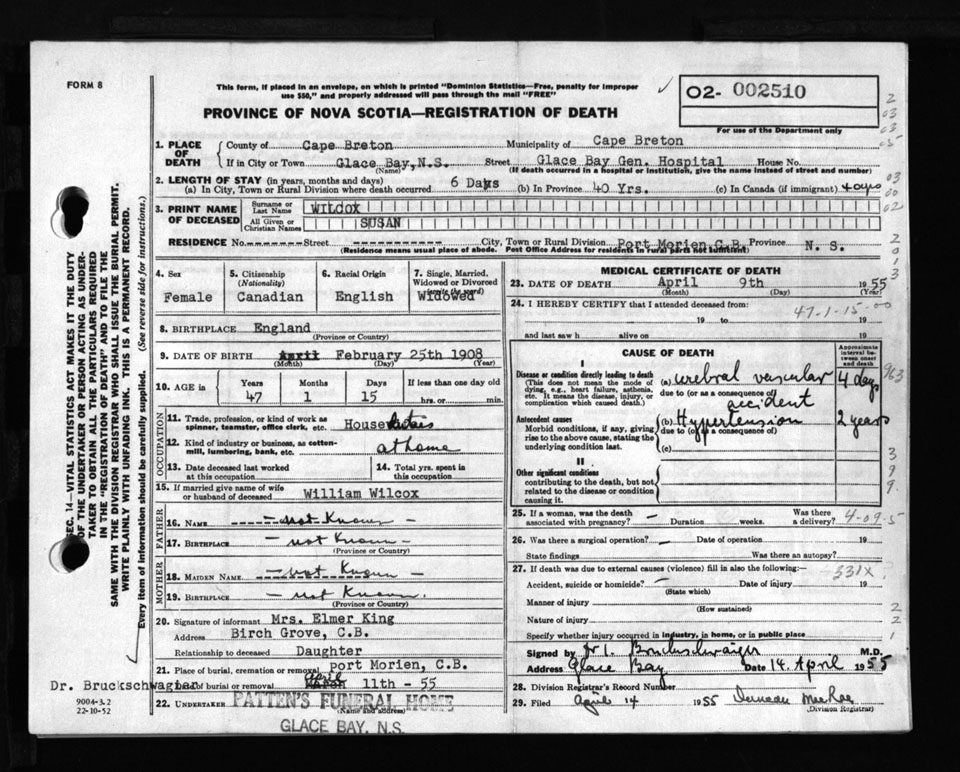 FORM 8
This form, if placed in an envelope, on which is printed "Dominion Statistics—Free, penalty for improper
use $50," and properly addressed will pass through the mail "FREE"
PROVINCE OF NOVA SCOTIA—REGISTRATION OF DEATH
02- 002510
For use of the Department only
1. PLACE OF DEATH
County of Cape Breton Municipality of Cape Breton
If in City or Town Glace Bay, N.S. Street Glace Bay Gen. Hospital House No.
(Name) (If death occurred in a hospital or institution, give the name instead of street and number)
2. LENGTH OF STAY (in years, months and days)
(a) In City, Town or Rural Division where death occurred 6 Days (b) In Province 40 Yrs. (c) In Canada (if immigrant)
3. PRINT NAME OF DECEASED
Surname or Last Name WILCOX
All Given or Christian Names SUSAN
RESIDENCE No. Street City, Town or Rural Division Port Morien C.B. Province N. S.
(Residence means usual place of abode. Post Office Address for residents in rural parts not sufficient)
4. Sex
Female
5. Citizenship
(Nationality)
Canadian
6. Racial Origin
English
7. Single, Married, Widowed or Divorced
(write the word)
Widowed
8. BIRTHPLACE England
(Province or Country)
9. DATE OF BIRTH April February 25th 1908
(Month) (Day) (Year)
10. AGE in Years Months Days If less than one day old
47 1 15 hrs. or min.
OCCUPATION
11. Trade, profession, or kind of work as
spinner, teamster, office clerk, etc. House
12. Kind of industry or business, as cotton-
mill, lumbering, bank, etc. at home
13. Date deceased last worked
at this occupation
14. Total yrs. spent in
this occupation
15. If married give name of wife
or husband of deceased William Wilcox
FATHER
16. NAME — not Known —
17. BIRTHPLACE — not Known —
(Province or Country)
MOTHER
18. MAIDEN NAME — not Known —
19. BIRTHPLACE — not Known.
(Province or Country)
20. Signature of informant Mrs. Elmer King
Address Birch Grove, C.B.
Relationship to deceased Daughter
21. Place of burial, cremation or removal port Morien, C.B.
Date of burial or removal April 11th - 55
Dr. Bruckschwagier
22. UNDERTAKER PATTEN'S FUNERAL HOME
(Name and address)
GLACE BAY, N.S.
9004-3.2
22-10-52
SEC. 14—VITAL STATISTICS ACT MAKES IT THE DUTY
OF THE UNDERTAKER OR PERSON ACTING AS UNDER-
TAKER TO OBTAIN ALL THE PARTICULARS REQUIRED
IN THE "REGISTRATION OF DEATH" AND TO FILE THE
SAME WITH THE DIVISION REGISTRAR WHO SHALL ISSUE THE BURIAL PERMIT.
WRITE PLAINLY WITH UNFADING INK. THIS IS A PERMANENT RECORD.
Every item of information should be carefully supplied. (See reverse side for instructions.)
MEDICAL CERTIFICATE OF DEATH
23. DATE OF DEATH April 9th 1955
(Month) (Day) (Year)
24. I HEREBY CERTIFY that I attended deceased from:
47-1-15
19 to 19
and last saw h alive on 19
CAUSE OF DEATH
Approximate interval between onset and death
I
Disease or condition directly leading to death
(This does not mean the mode of
dying, e.g., heart failure, asthenia,
etc. It means the disease, injury, or
complication which caused death.)
(a) cerebral vascular 4 days
due to (or as a consequence of)
accident
Antecedent causes
Morbid conditions, if any, giving
rise to the above cause, stating the
underlying condition last.
(b) Hypertension 2 years
due to (or as a consequence of)
(c)
II
Other significant conditions
contributing to the death, but not
related to the disease or condition
causing it.
25. If a woman, was the death
associated with pregnancy? — Duration weeks. Was there a delivery? 4-09-5
26. Was there a surgical operation? — Date of operation 19
State findings Was there an autopsy?
27. If death was due to external causes (violence) fill in also the following:—
331X
Accident, suicide or homicide? — Date of injury 19
(State which)
Manner of injury
(How sustained)
Nature of injury
Specify whether injury occurred in industry, in home, or in public place
Signed by M.D.
Address Glace Bay Date 14. April 1955
28. Division Registrar's Record Number
29. Filed April 14 1955
(Division Registrar)